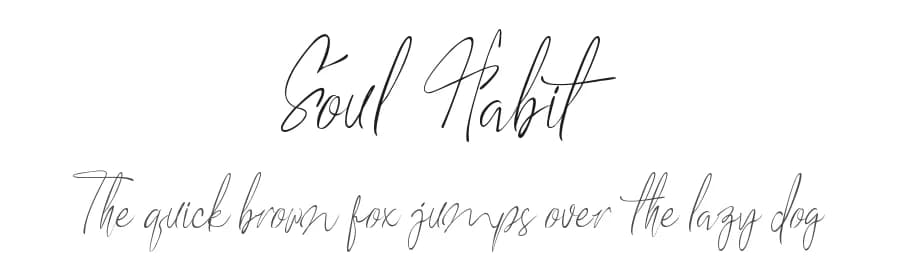 Soul Habit
The quick brown fox jumps over the lazy dog